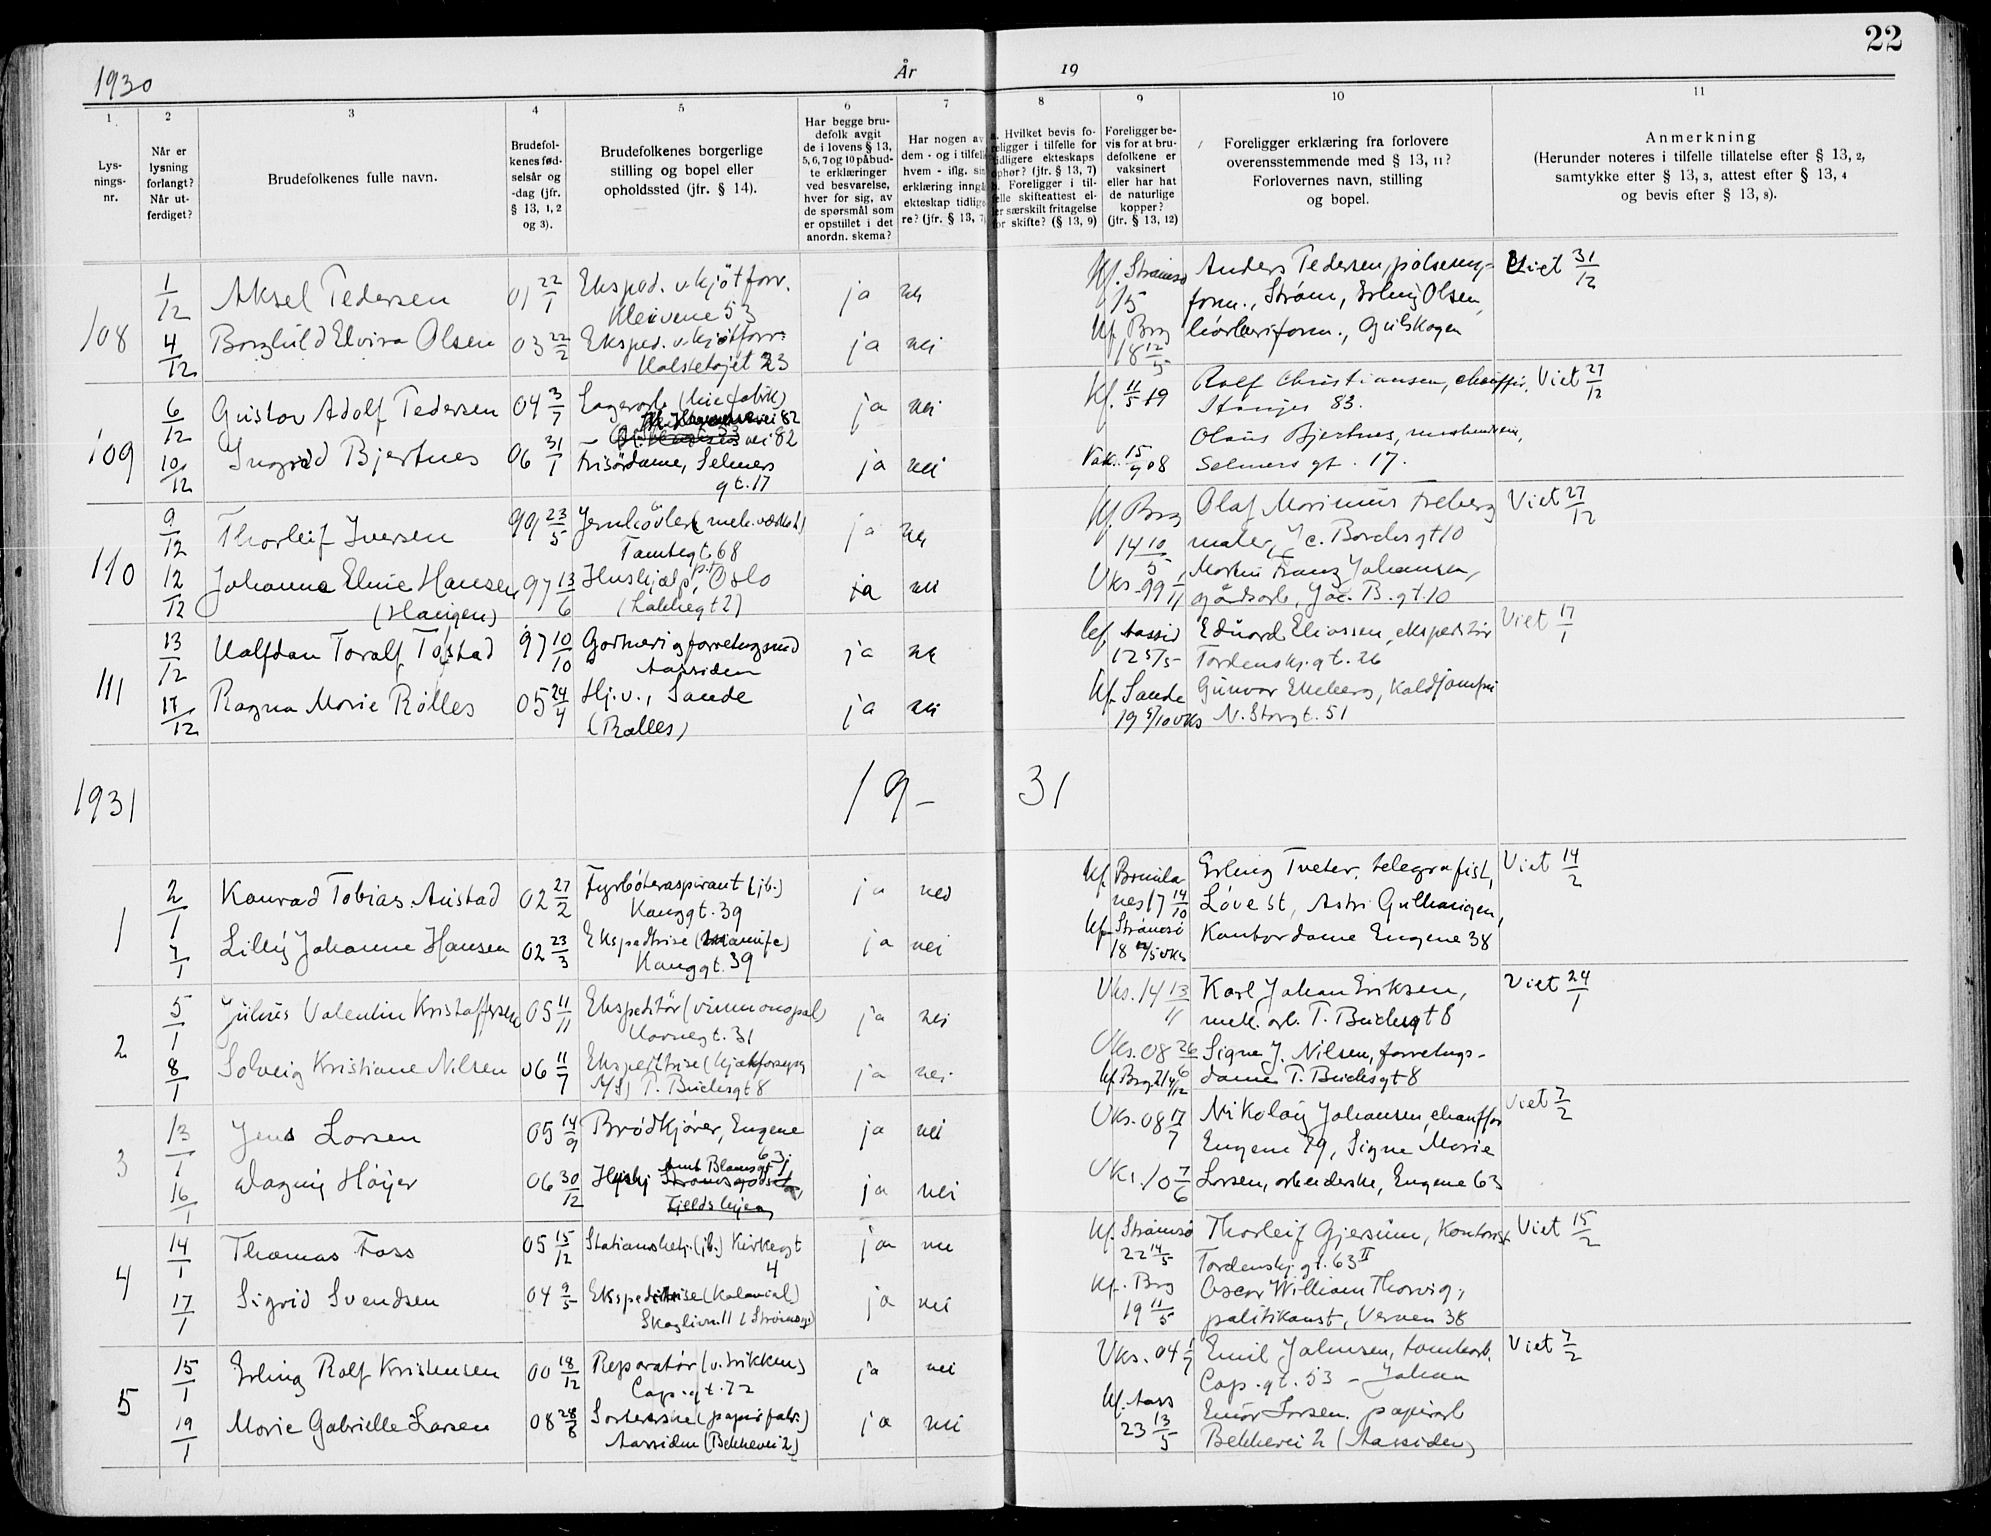 22
1930
År
19
1
2
3
4
5
6
7
8
9
10
11
Lys-
nings-
nr.
Når er
lysning
forlangt?
Når ut-
ferdiget?
Brudefolkenes fulle navn.
Brudefol-
kenes fød-
selsår og
-dag (jfr.
§ 13, 1, 2
og 3).
Brudefolkenes borgerlige
stilling og bopel eller
opholdssted (jfr. § 14).
Har begge bru-
defolk avgit
de i lovens § 13,
5, 6, 7 og 10 påbud-
te erklæringer
ved besvarelse,
hver for sig, av
de spørsmål som
er opstillet i det
anordn. skema?
Har nogen av
dem - og i tilfelle
hvem - iflg. sin
erklæring inngå
ekteskap tidlige-
re? (jfr. § 13, 7,
a. Hvilket bevis fo-
religger i tilfelle for
tidligere ekteskaps
ophør? (jfr. § 13, 7)
b. Foreligger i til-
felle skifteattest el-
ler særskilt fritagelse
for skifte? (§ 13, 9)
Foreligger be-
vis for at bru-
defolkene er
vaksinert
eller har hat
de naturlige
kopper?
(jfr. § 13, 12)
Foreligger erklæring fra forlovere
overensstemmende med § 13, 11?
Forlovernes navn, stilling
og bopel.
Anmerkning
(Herunder noteres i tilfelle tillatelse efter § 13, 2,
samtykke efter § 13, 3, attest efter § 13, 4
og bevis efter § 13, 8).
108
1/12 Aksel Pedersen 01 22/1 Eksped. v. kjøtforr. ja nei Kf. Strømsø Anders Pedersen, Viet 31/12
Kleivene 53 15 form., Strøm, Erling Olsen,
4/12 Borghild Elvira Olsen 03 22/2 Eksped. v. kjøtforr. ja nei Kf. Brg Gulskogen
23 18 12/5
109
6/12 Gustav Adolf Pedersen 04 3/7 Lagerarb. ja nei Kf. 11/5 19 Rolf Christiansen, chauffør, Viet 27/12
vei 82 83.
10/12 Ingrid Bjertnes 06 31/1 frisørdame, Selmers ja nei Vak. 15/7 08 Olaus Bjertnes,
gt. 17 Selmers gt. 17.
110
9/12 Thorleif Iversen 99 23/5 Jernhøvler (mek. verksted) ja nei Kf. Brg Olaf Marinius Freberg Viet 27/12
Tomtegt. 68 14 10/5 maler, gt 10
12/12 Johanna Elvie Hansen 97 13/6 Hushjælp, Oslo ja nei Vks. 99 Johansen,
(Haugen) (Lakkegt 2) gårdsarb., Jac. B. gt. 10
111
13/12 Halfdan Toralf Tostad 97 10/10 Gartneri og forretningsmd ja nei Kf. Aassid Edvard Eliassen, ekspeditør Viet 17/1
Aassiden 12 5/5 Tordenskj. gt. 26
17/12 Ragna Marie Rølles 05 24/4 Hj. v., Sande ja nei Kf. Sande Gunvor Ekeberg, Koldjomfru
(Rølles) 19 N. Storgt. 51
1931 19-31
1
2/1 Konrad Tobias Austad 02 27/2 Fyrbøteraspirant (jb.) ja nei Kf. Brunla- Erling Tveter, telegrafist, Viet 14/2
Konggt. 39 nes 17 14/10 Løve st, Astri Gulhaugen,
7/1 Lilly Johanne Hansen 02 23/3 Ekspeditrise ja nei Kf. Strømsø Kontordame Engene 38
Konggt. 39 18
2
5/1 Julius Valentin Kristoffersen 05 11/11 Ekspeditør (vinmonopol) ja nei Vks. 14 13/11 Karl Johan Eriksen, Viet 24/1
Havnegt. 31 mek. arb. T. Buchsgt 8
8/1 Solveig Kristiane Nilsen 06 11/7 Ekspeditrise ja nei Vks. 08 26/6 Signe J. Nilsen, forretnings-
A/S) T. Buchsgt 8 Kf. Brg dame T. Buchsgt 8
3
13/1 Jens Larsen 05 14/9 Brødkjører, Engene ja nei Vks. 08 17/7 Nikolay Johansen, chauffør Viet 7/2
63 Engene 79, Signe Marie
16/1 Dagny Høyer 06 30/12 Hushj ja nei Vks. 10 7/6 Larsen, arbeiderske, Engene 63
4
14/1 Thomas Foss 05 15/12 Stationsbetj. (jb.) Kirkegt ja nei Kf. Strømsø Thorleif Gjersum, Kontorist Viet 15/2
4 22 14/5 Tordenskj. gt. 63 II
17/1 Sigrid Svendsen 04 9/5 Ekspeditrise (kolonial) ja nei Kf. Brg Oscar William Thorvig,
Skogliv. 11 19 11/5 politikonst, Verven 38
5
15/1 Erling Rolf Kristensen 00 18/12 Reparatør ja nei Vks. 04 1/7 Emil Johnsen, tomtearb. Viet 7/2
Cap. gt. 72 Cap. gt. 53 - Johan
19/1 Marie Gabrielle Larsen 08 28/8 Sorterske (papirfabr.) ja nei Kf. Aass Einar Larsen. papirarb
Aassiden (Bekkevei 2) 23 13/5 Bekkevei 2 (Aassiden)